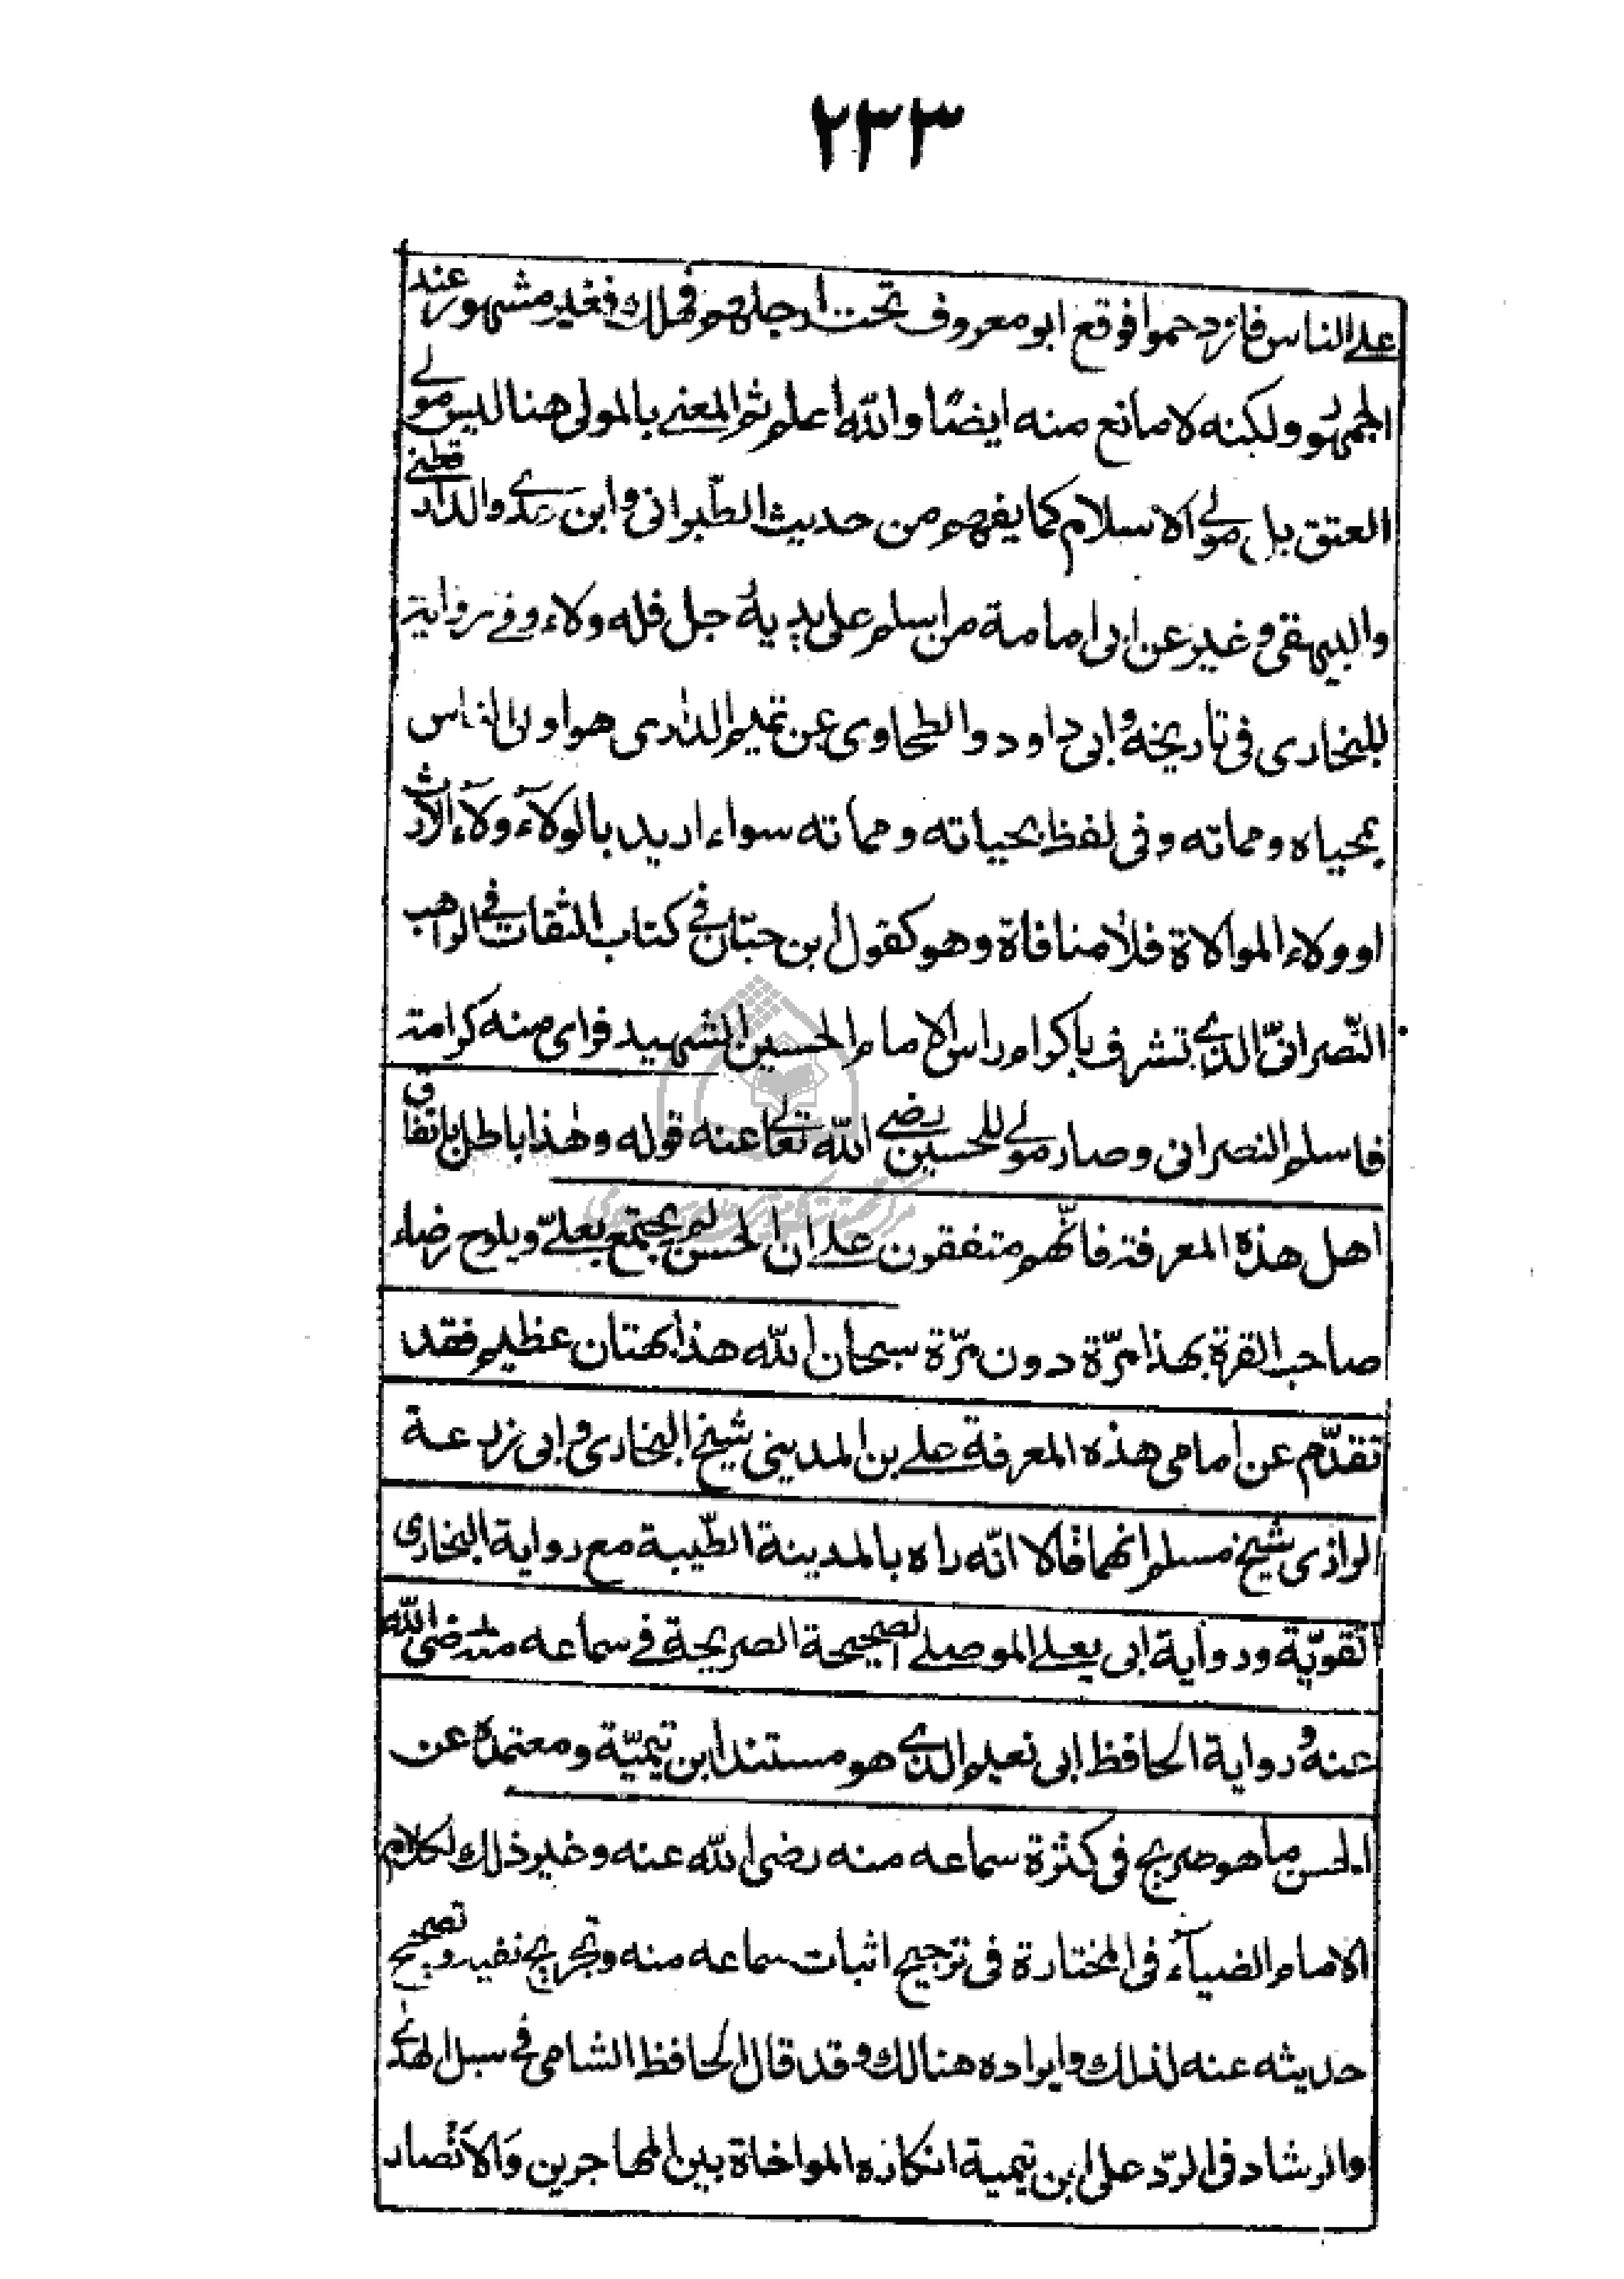 ٢٣٣
على الناس فازدحموا فوقع ابو معروف تحت ارجلهم فهلك فغير مشهور عند
الجمهور ولكنه لا مانع منه ايضًا والله اعلم ثم المعنى بالمولى هنا ليس مولے
العتق بل مولے الاسلام كما يفهم من حديث الطّبرانى وابن عدے والدارقطنے
والبيهقى وغير عن ابى امامة من اسلم على يديه رجل فله ولاءه وفے رواية
للبخارى فى تاريخه وابى داود والطحاوى عن تميم الدّارى هو اولى الناس
بمحياه ومماته وفى لفظ بحياته ومماته سواء اريد بالولآء ولآء الارث
او ولاء الموالاة فلا منافاة وهو كقول ابن حبّان فے كتاب الثقات فے الراهب
النّصرانىّ الذے تشرف باكرام راس الامام الحسين الشهيد فراى منه كرامته
فاسلم النصرانى وصار مولے للحسين رضے الله تعالے عنه قوله وهذا باطل باتفاق
اهل هذه المعرفة فانّهم متفقون علے ان الحسن لم يجتمع بعلےّ ويلوح رضاء
صاحب القرة بهذا مرّة دون مرّة سبحان الله هذا بهتان عظيم فقد
تقدّم عن امامى هذه المعرفة علے بن المدينى شيخ البخارى وابى زرعة
الرازى شيخ مسلم انهما قالا انّه راه بالمدينة الطّيبة مع رواية البخارى
القويّة ورواية ابى يعلے الموصلے الصحيحة الصريحة فے سماعه منه رضى الله
عنه ورواية الحافظ ابى نعيم الذے هو مستند ابن تيميّة ومعتمده عن
الحسن ما هو صريح فى كثرة سماعه منه رضى الله عنه وغير ذلك لكلام
الامام الضيآء فى المختارة فى ترجيح اثبات سماعه منه وتجريح نفيه وتصحيح
حديثه عنه لذلك وايراده هنالك وقد قال الحافظ الشامى فے سبل الهدٰے
والرشاد فى الردّ على ابن تيمية انكاره المواخاة بين المهاجرين والانصار